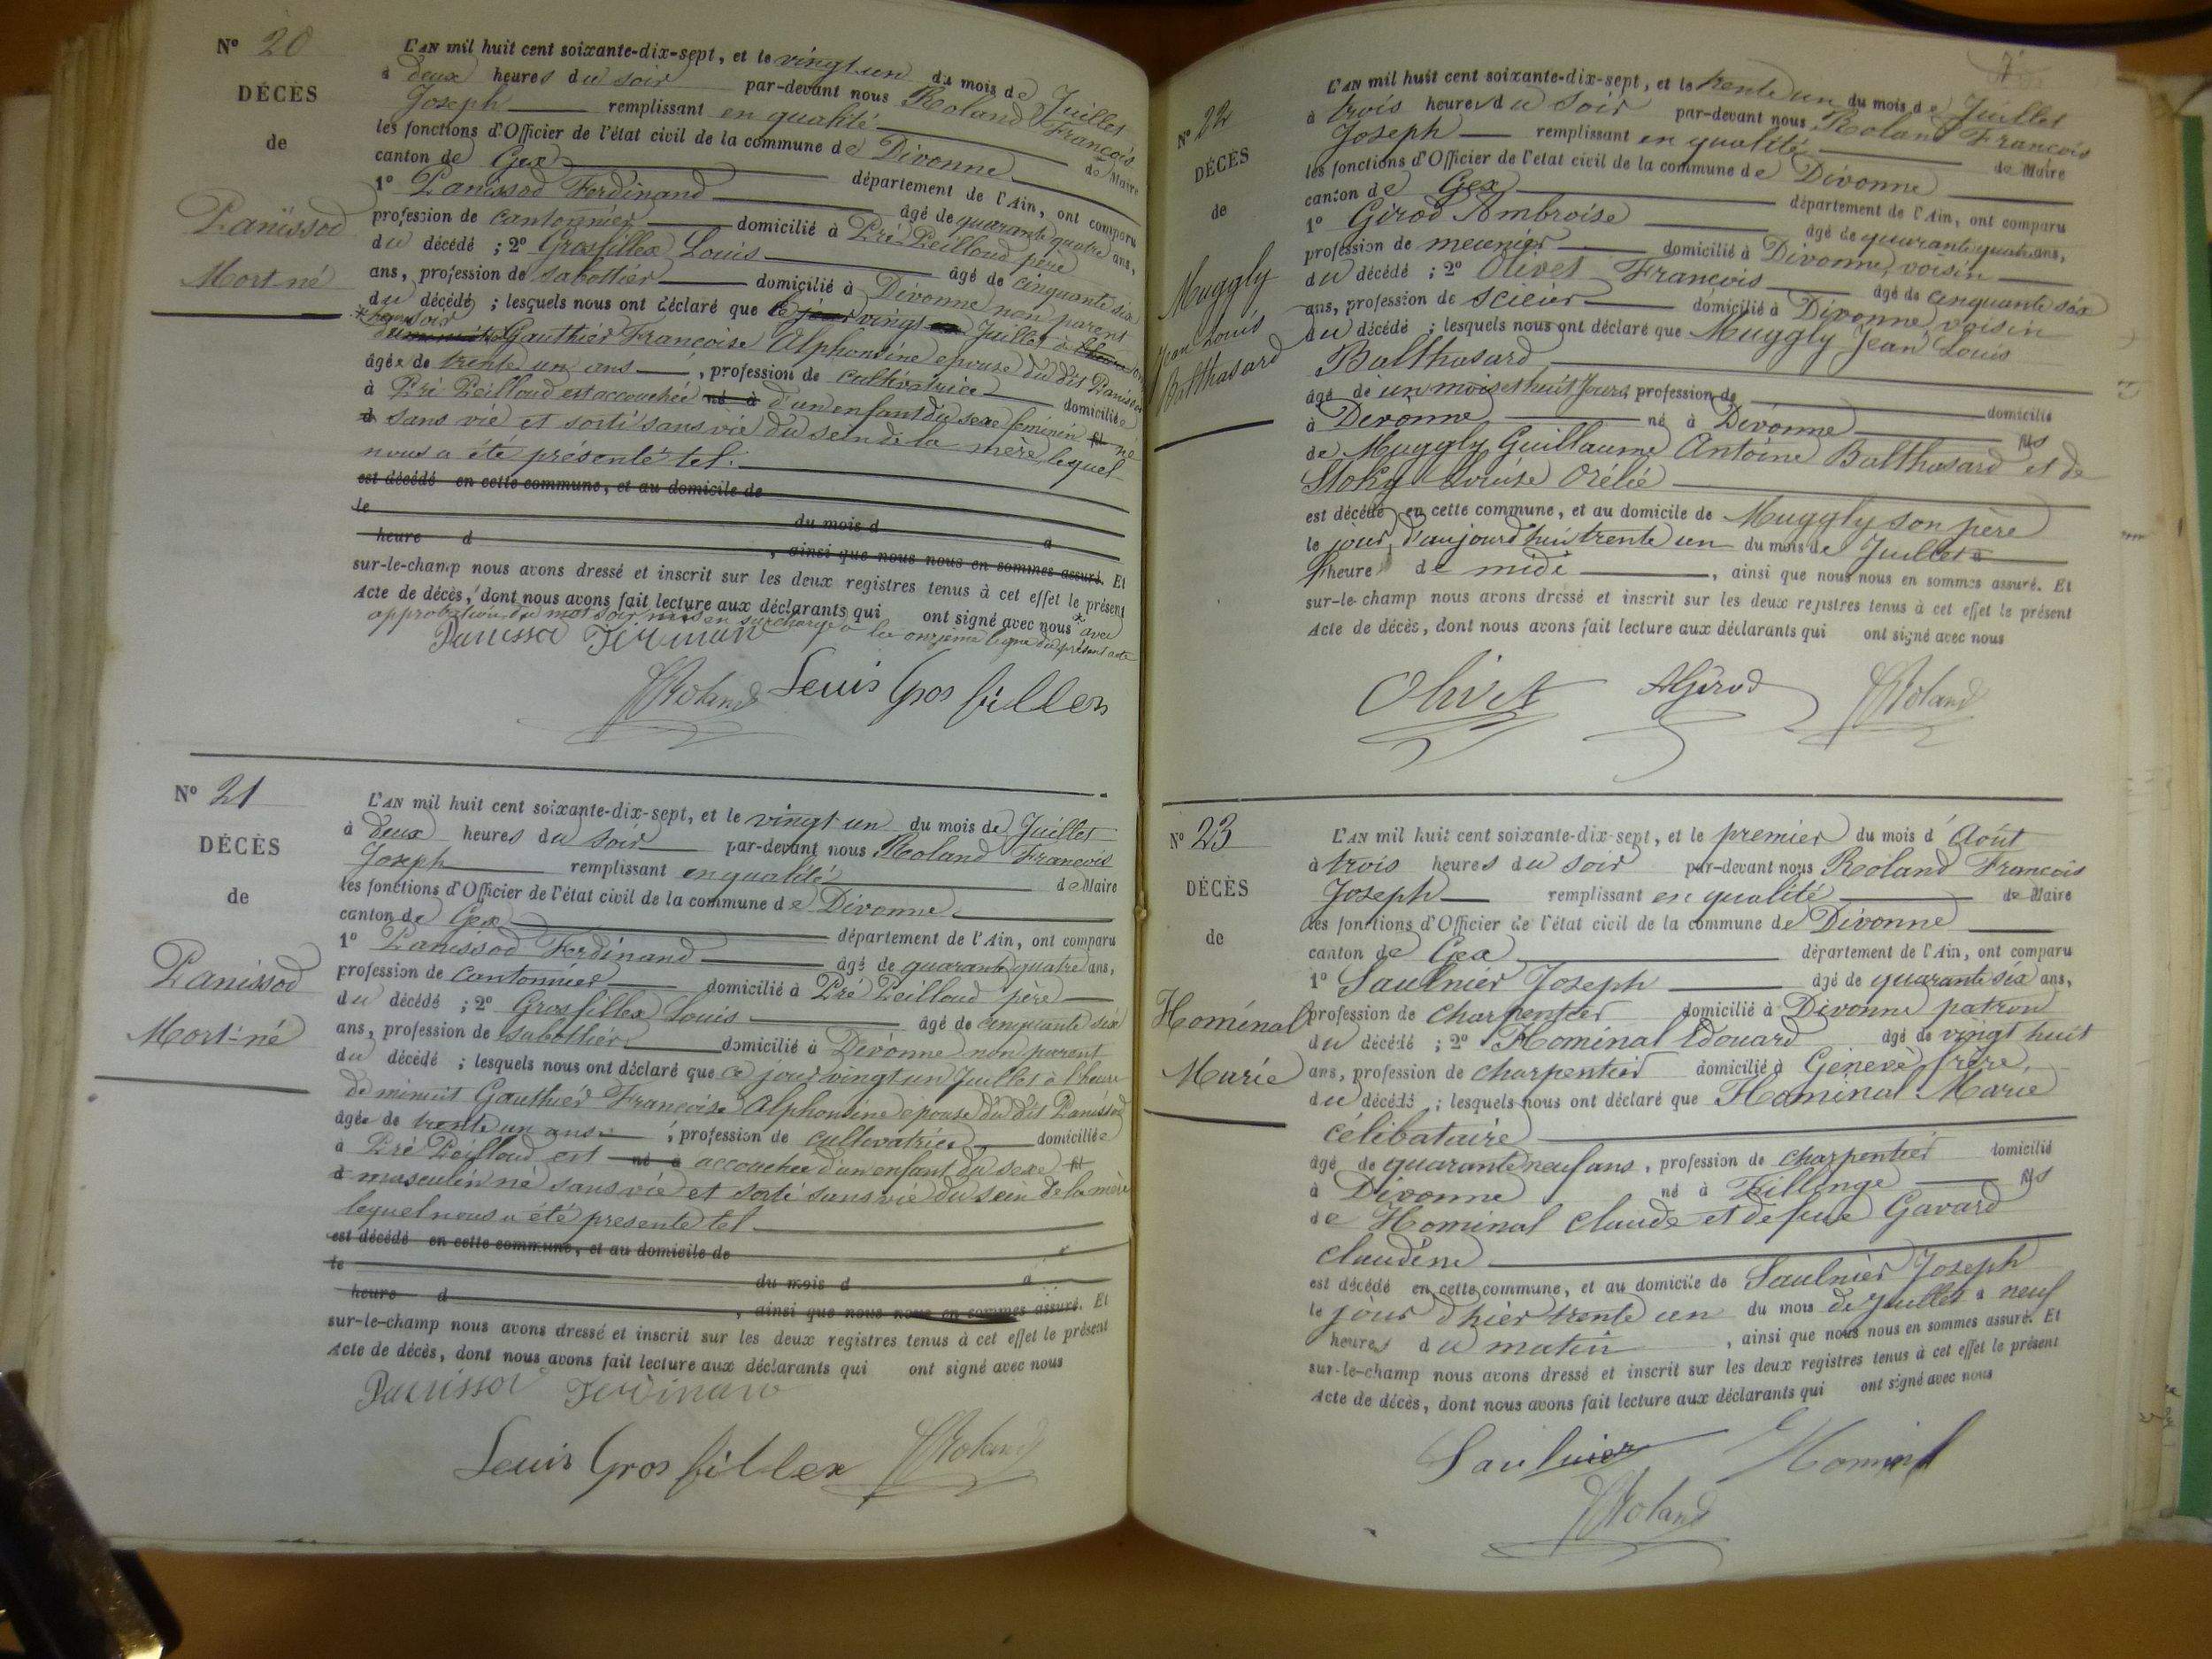 Nº 20
DÉCÈS
de
Panissod
Mort-né
L'AN mil huit cent soixante-dix-sept, et le vingt un du mois de Juillet
à deux heures du soir par-devant nous Roland François
Joseph remplissant en qualité de Maire
les fonctions d'Officier de l'état civil de la commune de Divonne
canton de Gex département de l'Ain, ont comparu
1º Panissod Ferdinand âgé de quarante quatre ans,
profession de cantonnier domicilié à Pré Peilloud père
du décédé ; 2º Grosfillex Louis âgé de cinquante six
ans, profession de sabottier domicilié à Divonne non parent
du décédé ; lesquels nous ont déclaré que le jour vingt Juillet à
du soir Gauthier Françoise Alphonsine epouse du dit Panissod
âgée de trente un ans, profession de cultivatrice domiciliée
à Pré Peilloud est accouchée né à d'un enfant du sexe féminin fil né
d sans vie et sorti sans vie du sein de la mère, lequel
nous a été présenté tel.
est décédé en cette commune, et au domicile de
le du mois d à
heure d , ainsi que nous nous en sommes assuré. Et
sur-le-champ nous avons dressé et inscrit sur les deux registres tenus à cet effet le présent
Acte de décès, dont nous avons fait lecture aux déclarants qui ont signé avec nous * avec
approbation du mot soir mis en surcharge à la onzième ligne du présent acte
Panissod Ferdinand
Roland Louis Gros fillex
Nº 21
DÉCÈS
de
Panissod
Mort-né
L'AN mil huit cent soixante-dix-sept, et le vingt un du mois de Juillet
à deux heures du soir par-devant nous Roland François
Joseph remplissant en qualité de Maire
les fonctions d'Officier de l'état civil de la commune de Divonne
canton de Gex département de l'Ain, ont comparu
1º Panissod Ferdinand âgé de quarante quatre ans,
profession de cantonnier domicilié à Pré Peilloud père
du décédé ; 2º Grosfillex Louis âgé de cinquante six
ans, profession de sabottier domicilié à Divonne non parent
du décédé ; lesquels nous ont déclaré que ce jour vingt un Juillet à l'heure
de minuit Gauthier Françoise Alphonsine epouse du dit Panissod
âgée de trente un ans, profession de cultivatrice domiciliée
à Pré Peilloud est né à accouchée d'un enfant du sexe fil
d masculin né sans vie et sorti sans vie du sein de la mère
lequel nous a été presenté tel
est décédé en cette commune, et au domicile de
le du mois d à
heure d , ainsi que nous nous en sommes assuré. Et
sur-le-champ nous avons dressé et inscrit sur les deux registres tenus à cet effet le présent
Acte de décès, dont nous avons fait lecture aux déclarants qui ont signé avec nous
Panissod Ferdinand
Louis Gros fillex Roland
7
Nº 22
DÉCÈS
de
Muggly
Jean Louis
Balthasard
L'AN mil huit cent soixante-dix-sept, et le trente un du mois de Juillet
à trois heures du soir par-devant nous Roland François
Joseph remplissant en qualité de Maire
les fonctions d'Officier de l'état civil de la commune de Divonne
canton de Gex département de l'Ain, ont comparu
1º Girod Ambroise âgé de quarante quatre ans,
profession de meunier domicilié à Divonne, voisin
du décédé ; 2º Olivet François âgé de cinquante six
ans, profession de scieur domicilié à Divonne voisin
du décédé ; lesquels nous ont déclaré que Muggly Jean Louis
Balthasard
âgé de un mois et huit Jours, profession de domicilié
à Divonne né à Divonne fils
de Muggly Guillaume Antoine Balthasard et de
Stoky Louise Orélie
est décédé en cette commune, et au domicile de Muggly son père
le jour d'aujourd'hui trente un du mois de Juillet à
l'heure de midi, ainsi que nous nous en sommes assuré. Et
sur-le-champ nous avons dressé et inscrit sur les deux registres tenus à cet effet le présent
Acte de décès, dont nous avons fait lecture aux déclarants qui ont signé avec nous
Olivet AGirod Roland
Nº 23
DÉCÈS
de
Hominal
Marie
L'AN mil huit cent soixante-dix-sept, et le premier du mois d'Août
à trois heures du soir par-devant nous Roland François
Joseph remplissant en qualité de Maire
les fonctions d'Officier de l'état civil de la commune de Divonne
canton de Gex département de l'Ain, ont comparu
1º Saulnier Joseph âgé de quarante six ans,
profession de charpentier domicilié à Divonne patron
du décédé ; 2º Hominal Edouard âgé de vingt huit
ans, profession de charpentier domicilié à Genève, frère,
du décédé ; lesquels nous ont déclaré que Hominal Marie
célibataire
âgé de quarante neuf ans, profession de charpentier domicilié
à Divonne né à Fillinge fils
de Hominal Claude et de feue Gavard
Claudine
est décédé en cette commune, et au domicile de Saulnier Joseph
le jour d'hier trente un du mois de Juillet à neuf
heures du matin, ainsi que nous nous en sommes assuré. Et
sur-le-champ nous avons dressé et inscrit sur les deux registres tenus à cet effet le présent
Acte de décès, dont nous avons fait lecture aux déclarants qui ont signé avec nous
Saulnier Hominal
Roland